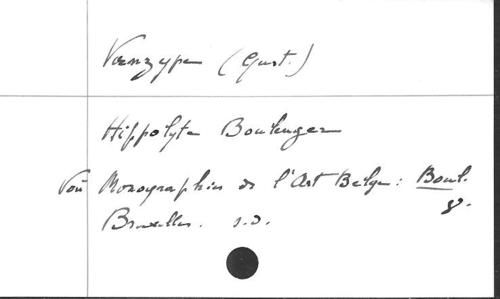 Vanzype (Gust.)
Hippolyte Boulenger
Voir Monographies de l'Art Belge: Boul.
Bruxelles. s.d. 8.